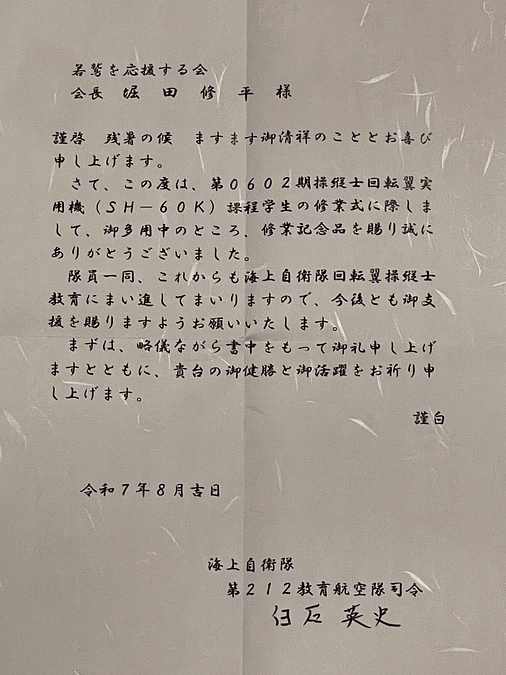 若鷲を応援する会
会長　堀　田　修　平　様
謹啓　残暑の候　ますます御清祥のこととお喜び
申し上げます。
　さて、この度は、第０６０２期操縦士回転翼実
用機（ＳＨ－６０Ｋ）課程学生の修業式に際しま
して、御多用中のところ、修業記念品を賜り誠に
ありがとうございました。
　隊員一同、これからも海上自衛隊回転翼操縦士
教育にまい進してまいりますので、今後とも御支
援を賜りますようお願いいたします。
　まずは、略儀ながら書中をもって御礼申し上げ
ますとともに、貴台の御健勝と御活躍をお祈り申
し上げます。
謹白
令和７年８月吉日
海上自衛隊
第２１２教育航空隊司令
臼石　英史